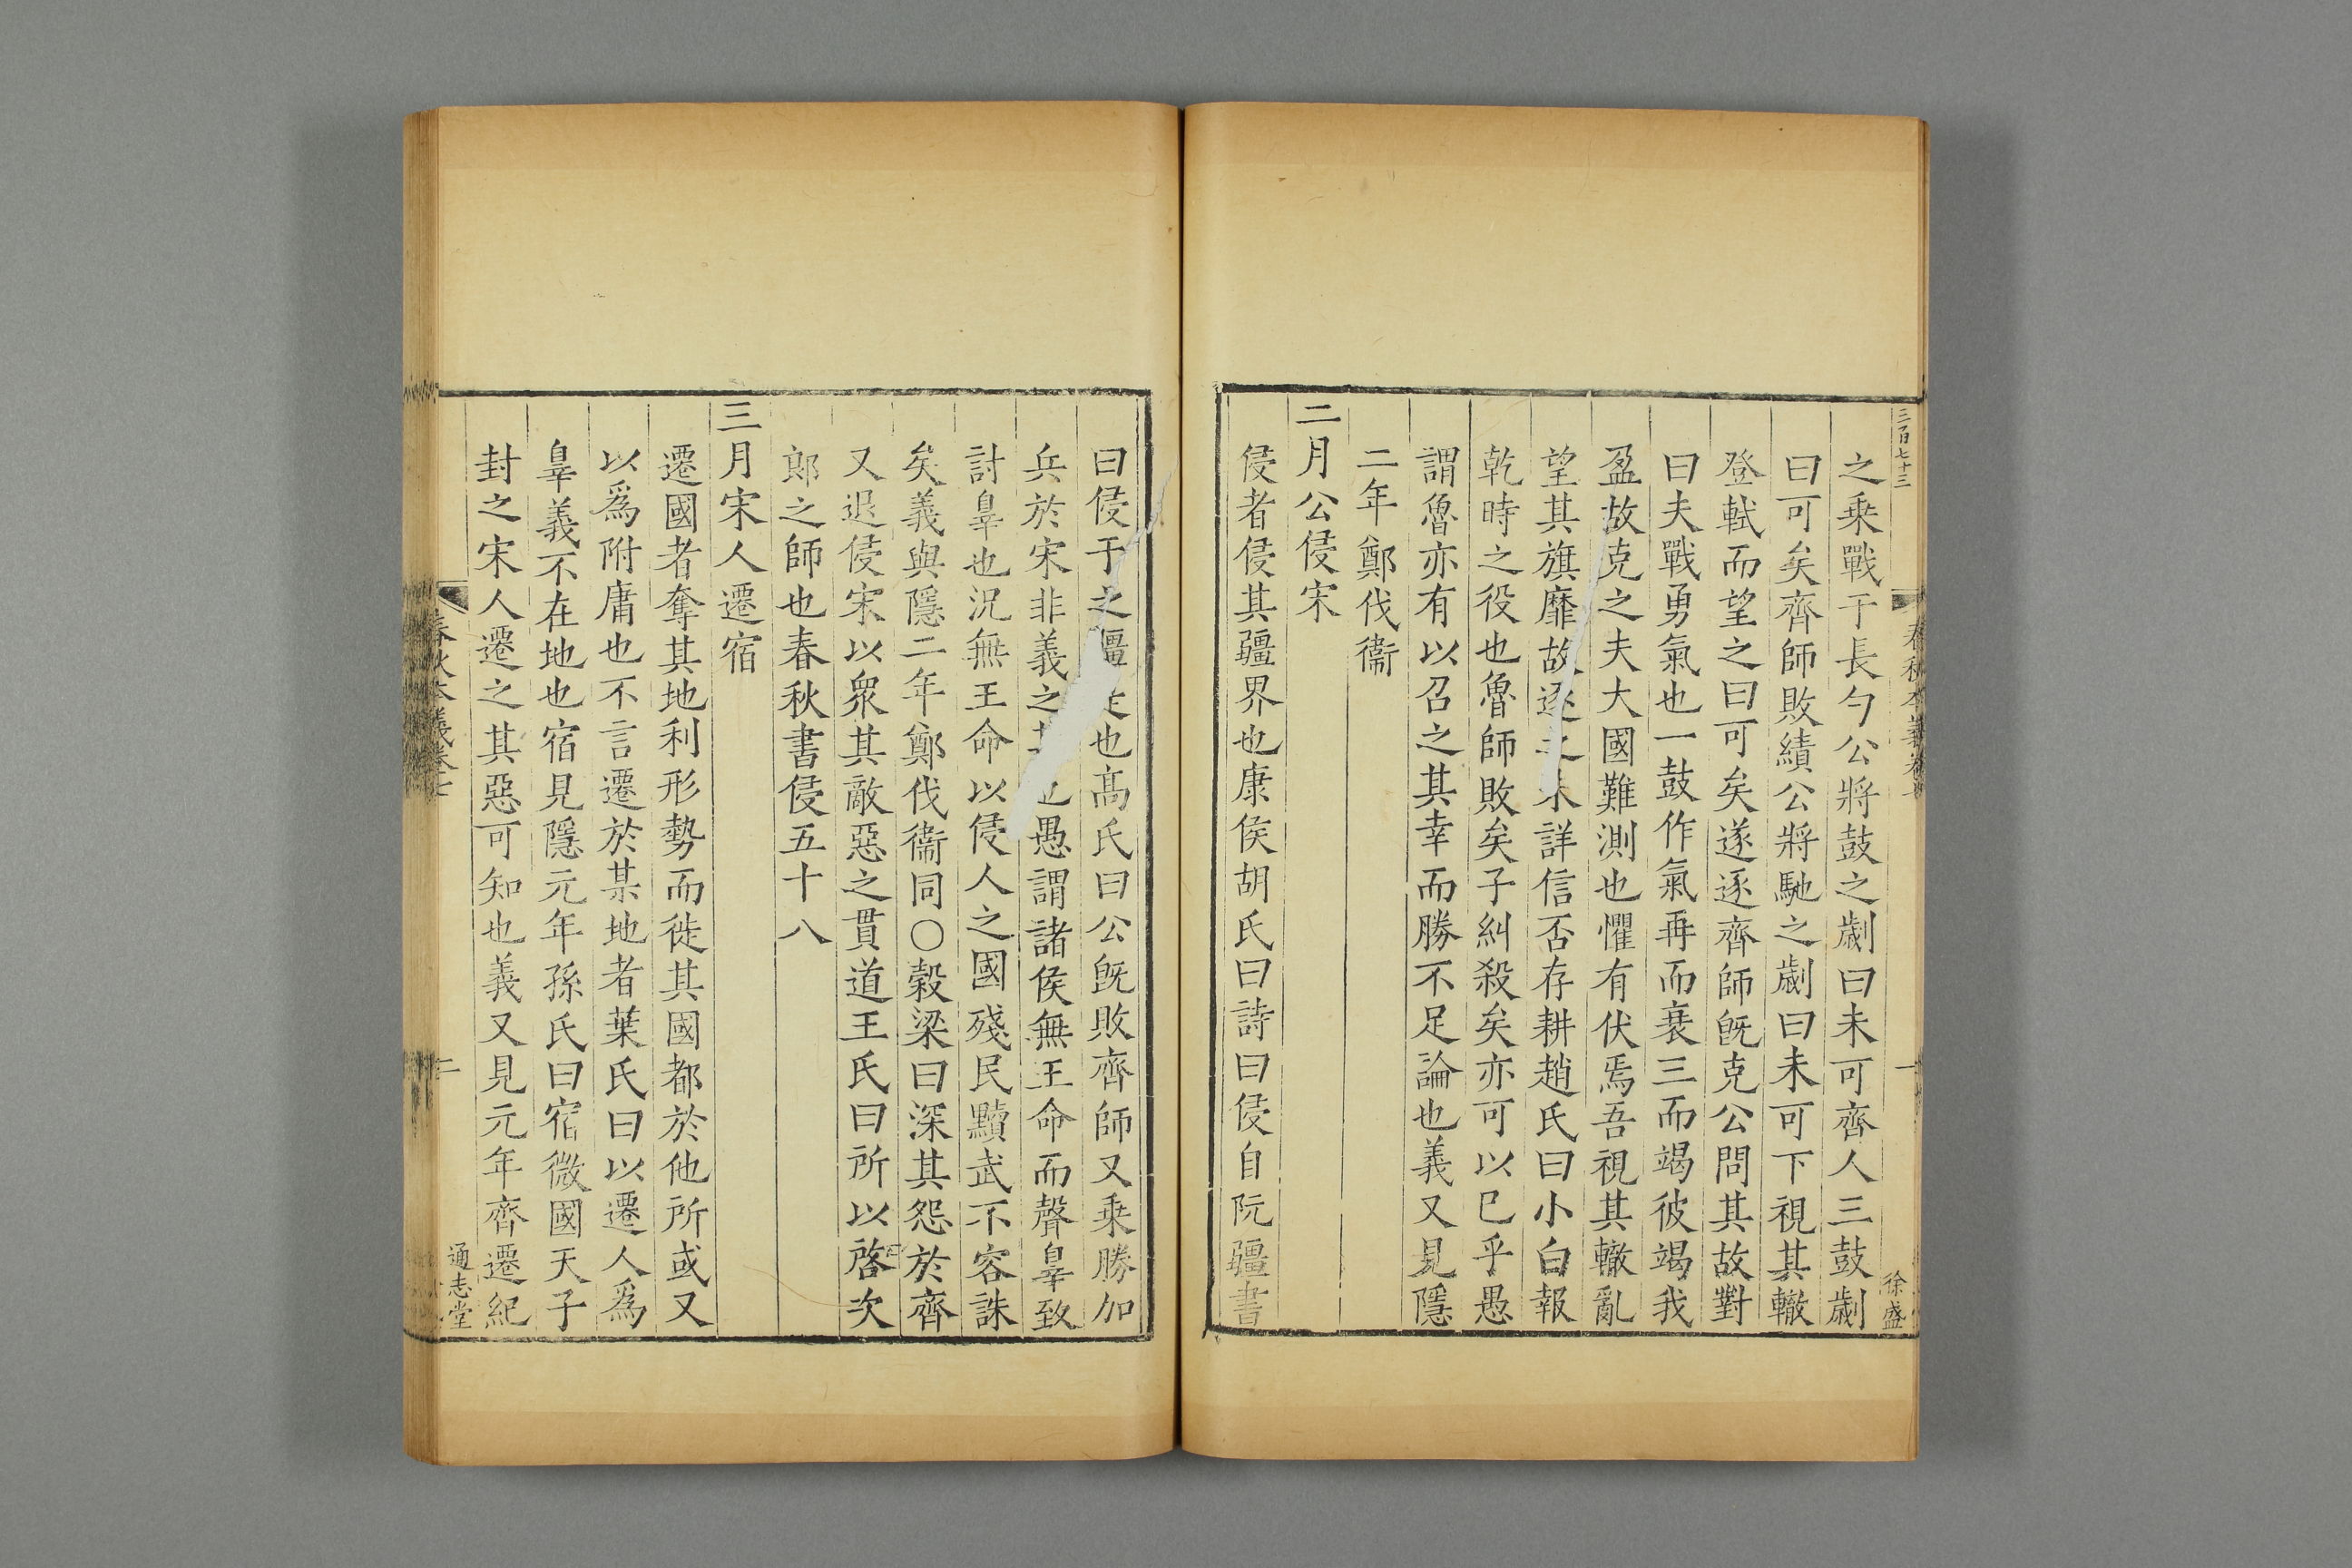 三百七十三
春秋本義卷七
一
徐盛
之乗戰于長勺公將鼓之劌曰未可齊人三鼓劌
曰可矣齊師敗績公將馳之劌曰未可下視其轍
登軾而望之曰可矣遂逐齊師旣克公問其故對
曰夫戰勇氣也一鼓作氣再而衰三而竭彼竭我
盈故克之夫大國難測也懼有伏焉吾視其轍亂
望其旗靡故逐之未詳信否存耕趙氏曰小白報
乾時之役也魯師敗矣子糾殺矣亦可以已乎愚
謂魯亦有以召之其幸而勝不足論也義又見隱
二年鄭伐衞
二月公侵宋
侵者侵其疆界也康侯胡氏曰詩曰侵自阮疆書
曰侵于之疆是也髙氏曰公旣敗齊師又乗勝加
兵於宋非義之也愚謂諸侯無王命而聲辠致
討辠也況無王命以侵人之國殘民黷武不容誅
矣義與隱二年鄭伐衞同○穀梁曰深其怨於齊
又退侵宋以衆其敵惡之貫道王氏曰所以啓次
郎之師也春秋書侵五十八
三月宋人遷宿
遷國者奪其地利形勢而徙其國都於他所或又
以爲附庸也不言遷於某地者葉氏曰以遷人爲
辠義不在地也宿見隱元年孫氏曰宿微國天子
封之宋人遷之其惡可知也義又見元年齊遷紀
春秋本義卷七
二
通志堂